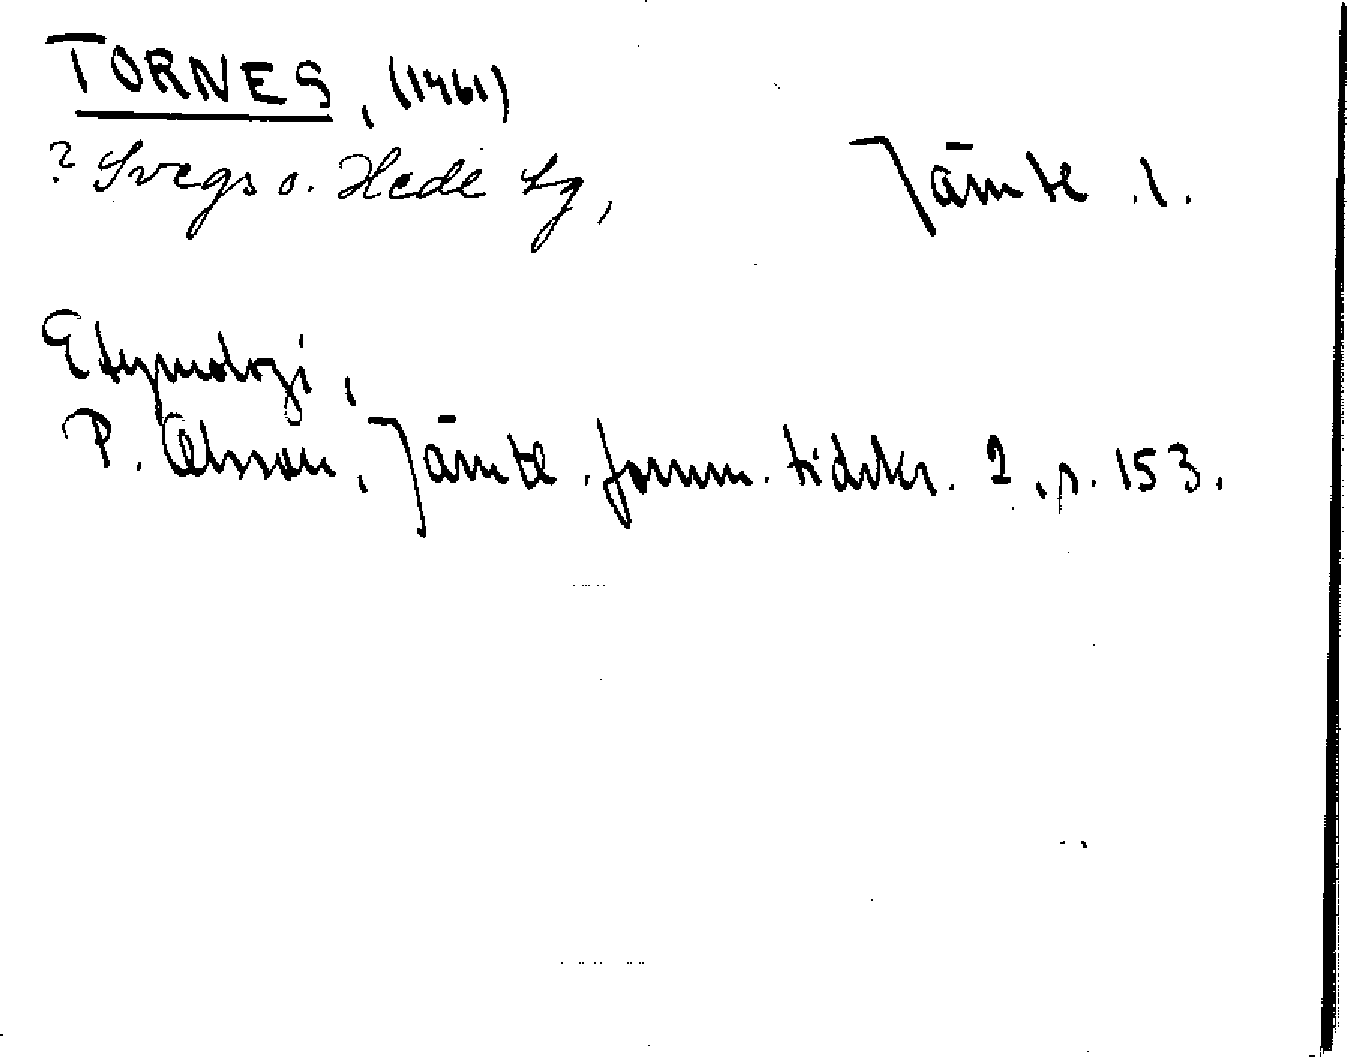 TORNES, (1461)
? Svegs o. Hede tg, Jämtl. l.
Etymologi,
P. Olsson, Jämtl. fornm. tidskr. 2, s. 153.